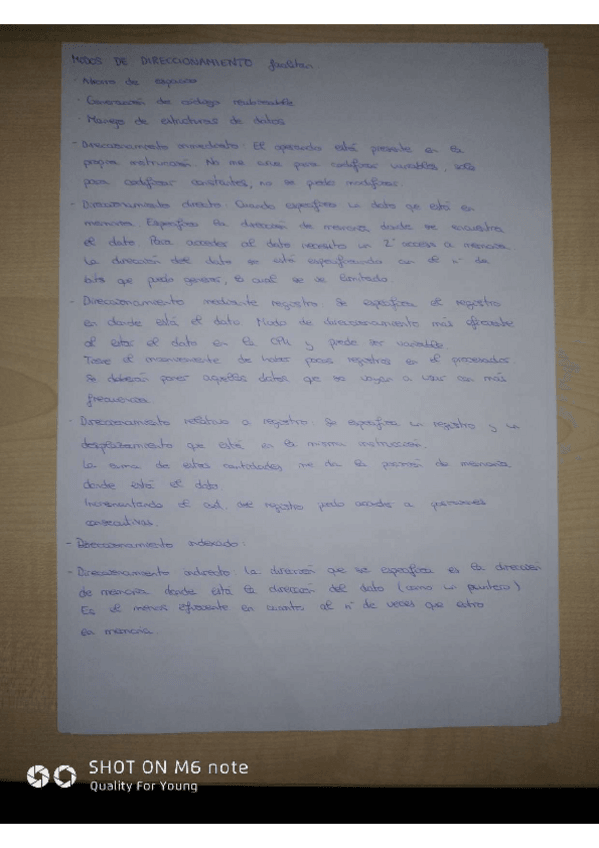 MODOS DE DIRECCIONAMIENTO facilitan
- Ahorro de espacio
- Generación de código reubicable
- Manejo de estructuras de datos
- Direccionamiento inmediato: El operando está presente en la
propia instrucción. No me sirve para codificar variables, solo
para codificar constantes, no se puede modificar.
- Direccionamiento directo: Cuando especifica la dato que está en
memoria. Especifica la dirección de memoria, donde se encuentra
el dato. Para acceder al dato necesito un 2º acceso a memoria.
La dirección del dato se está especificando con el nº de
bits que puedo generar, lo cual se ve limitado.
- Direccionamiento mediante registro. Se especifica el registro
en donde está el dato. Modo de direccionamiento más eficiente
al estar el dato en la CPU y puede ser variable.
Tiene el inconveniente de haber pocos registros en el procesador
Se deberán poner aquellos datos que se vayan a usar con más
frecuencia.
- Direccionamiento relativo a registro: Se especifica un registro y un
desplazamiento que está en la misma instrucción.
La suma de estas cantidades me da la posición de memoria
donde está el dato
Incrementando el del registro puedo acceder a posiciones
consecutivas.
- Direccionamiento indexado:
- Direccionamiento indirecto: La dirección que se especifica es la dirección
de memoria donde está la dirección del dato (como un puntero)
Es el menos eficiente en cuanto al nº de veces que entro
en memoria.
SHOT ON M6 note
Quality For Young